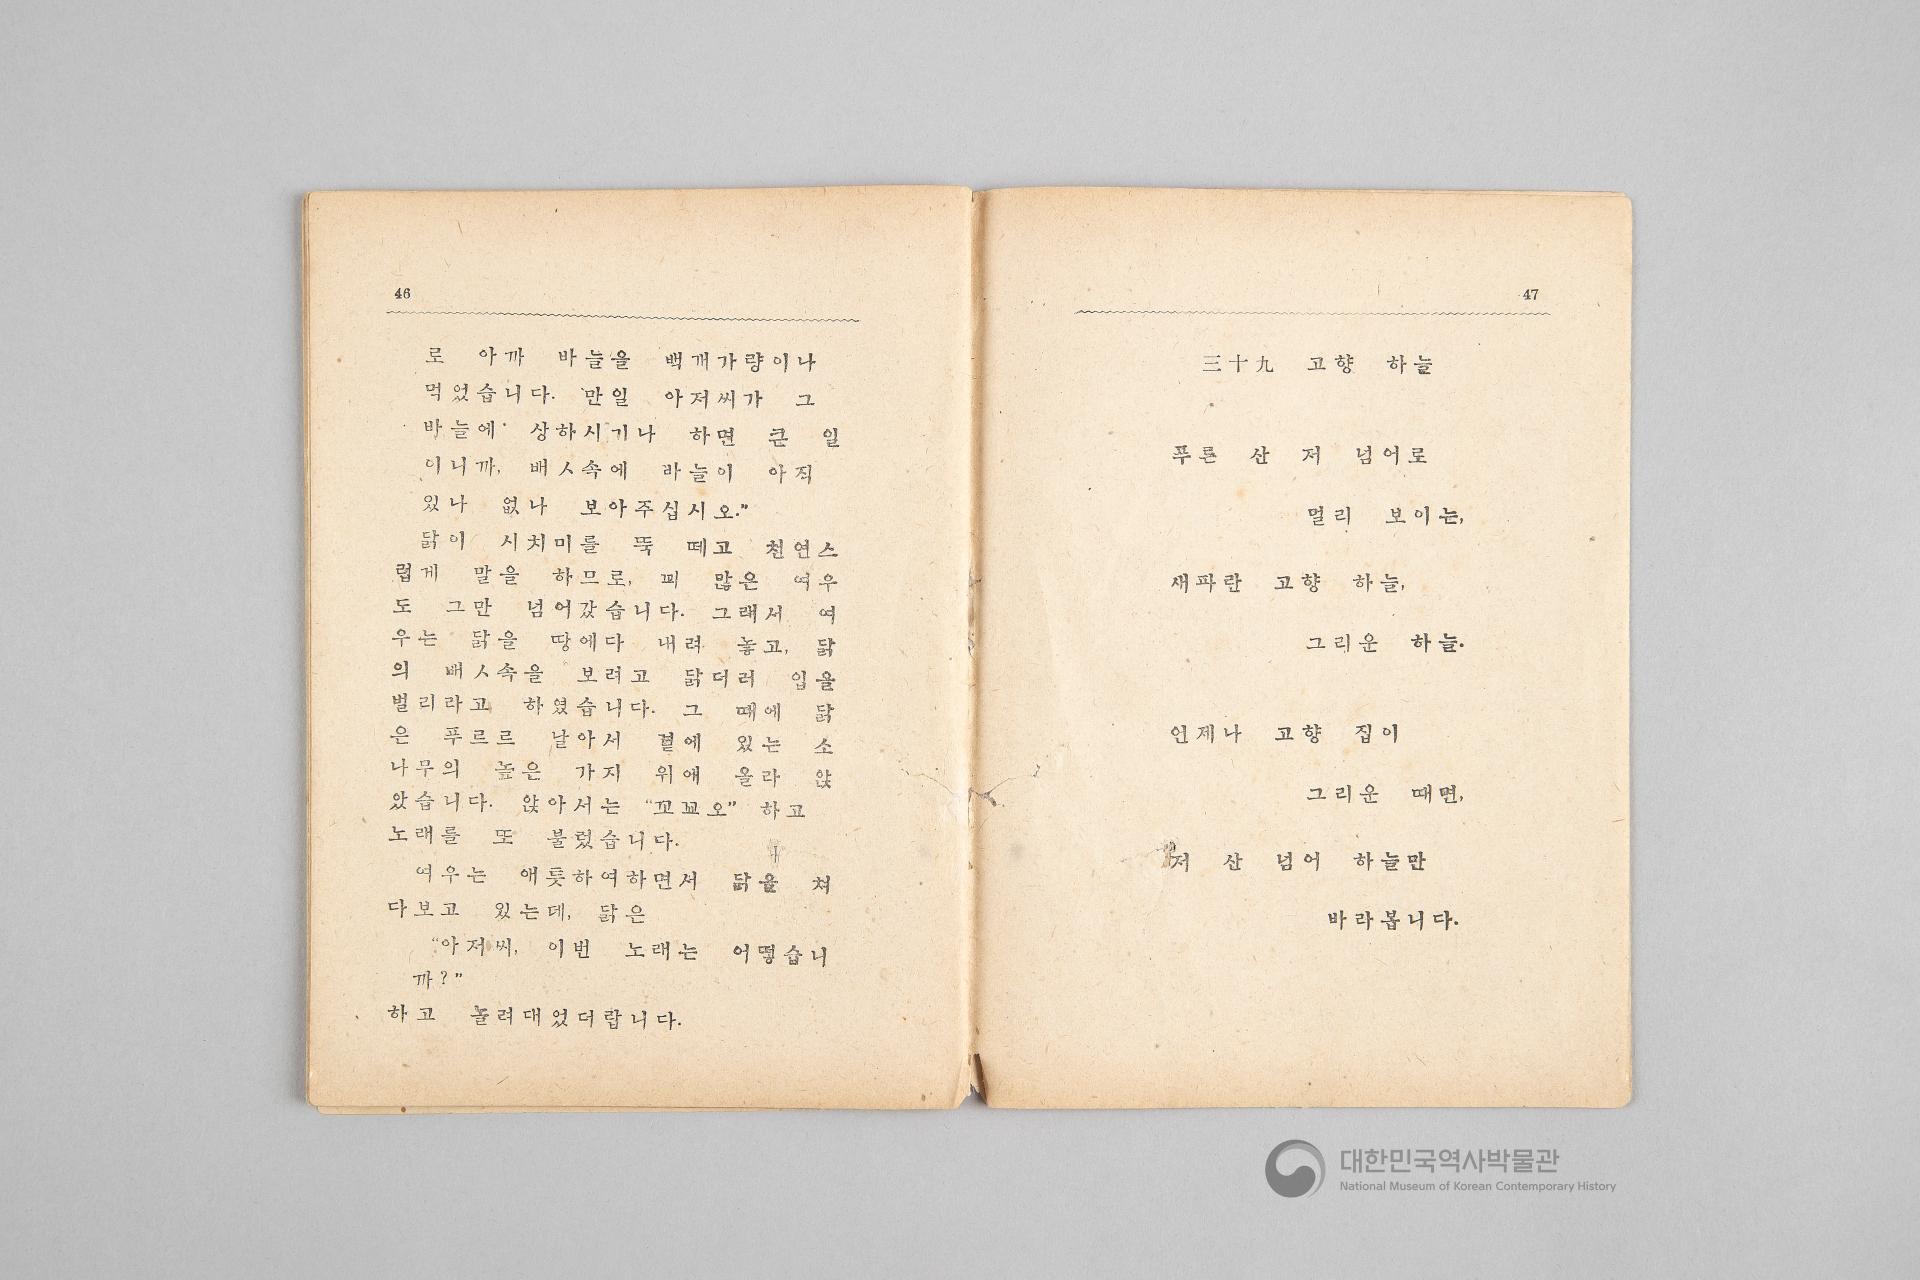 46
로 아까 바늘을 백개가량이나
먹었습니다. 만일 아저씨가 그
바늘에 상하시기나 하면 큰 일
이니까, 배ㅅ속에 바늘이 아직
있나 없나 보아주십시오.”
닭이 시치미를 뚝 떼고 천연스
럽게 말을 하므로, 꾀 많은 여우
도 그만 넘어갔습니다. 그래서 여
우는 닭을 땅에다 내려 놓고, 닭
의 배ㅅ속을 보려고 닭더러 입을
벌리라고 하였습니다. 그 때에 닭
은 푸르르 날아서 곁에 있는 소
나무의 높은 가지 위애 올라 앉
았습니다. 앉아서는 “꼬꾜오” 하고
노래를 또 불렀습니다.
여우는 애틋하여하면서 닭을 쳐
다보고 있는데, 닭은
“아저씨, 이번 노래는 어떻습니
까?”
하고 놀려대었더랍니다.
47
三十九 고향 하늘
푸른 산 저 넘어로
멀리 보이는,
새파란 고향 하늘,
그리운 하늘.
언제나 고향 집이
그리운 때면,
저 산 넘어 하늘만
바라봅니다.
대한민국역사박물관
National Museum of Korean Contemporary History